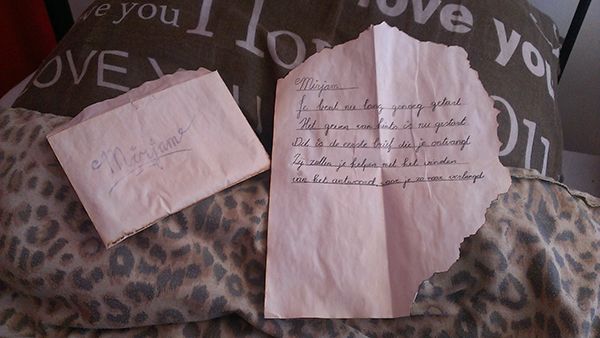 ve you
I lo
love you
LOVE YOU
I lo
ve you
ou
Mirjam
Mirjam
Je bent nu lang genoeg getart
Het geven van hints is nu gestart
Dit is de eerste brief die je ontvangt
Zij zullen je helpen met het vinden
van het antwoord waar je zo naar verlangd